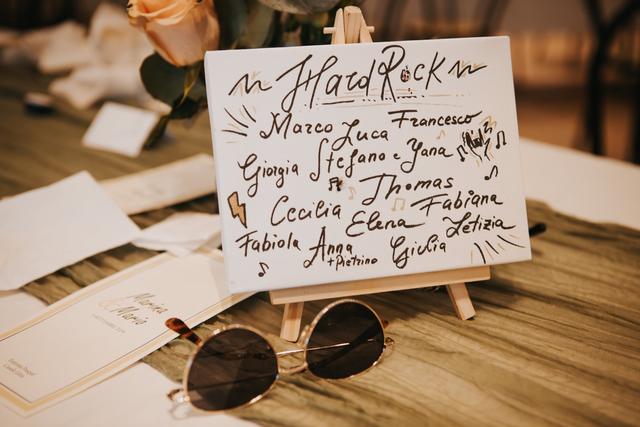 ~ Hard Rock ~
Marco Luca Francesco
Giorgia Stefano e Yana
Thomas
Cecilia Elena Fabiana
Fabiola Anna Giulia Letizia
+Pietrino
Marina
& Mario